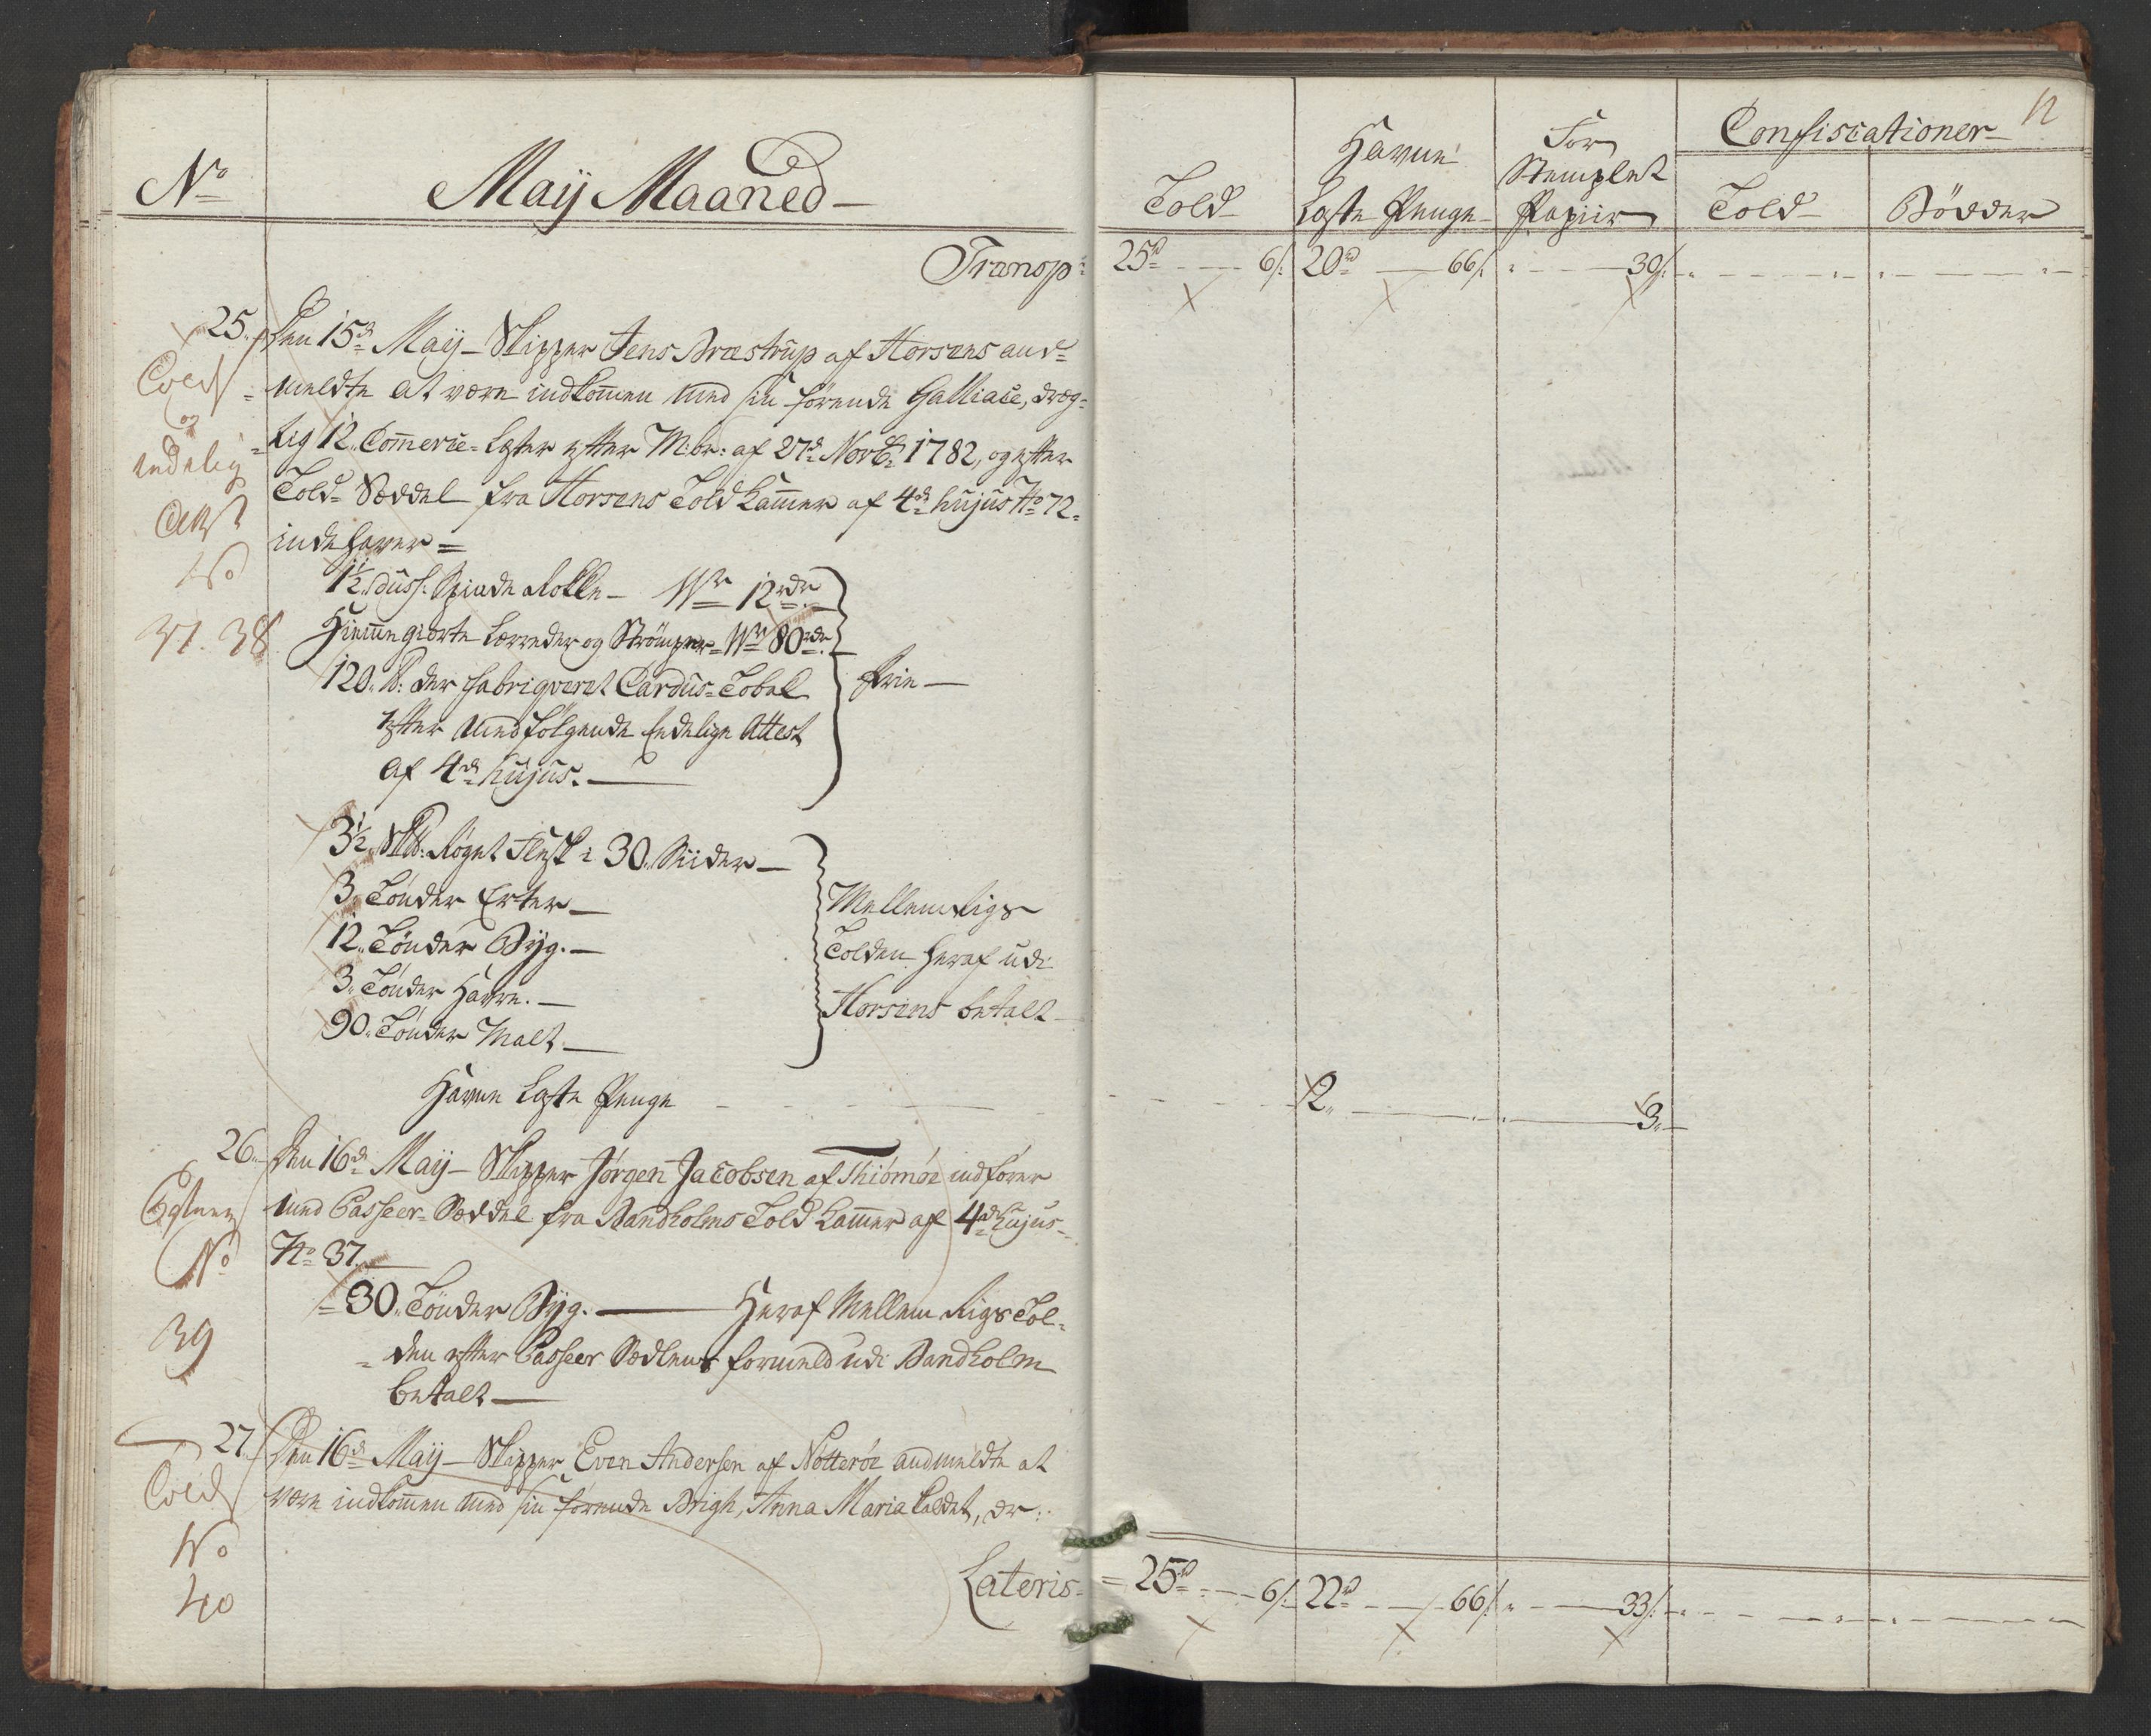 No
Maij Maaned
Transp:
25.
Den 15d Maij - Skipper Jens Bræstrup af Horsens and=
=meldte at være indkommen med sin förende Galliace, dræg=
=tig 12 Commerce-Læster efter M:br: af 27d Novbr 1782, og efter
Told-Seddel fra Horsens Told Kammer af 4d hujus No 72.
indehaver =
og
endelig
Att
No
37. 38
1½ duss: Spinde Rokke - Wr 12rdr
Hiemmegiorte Lærreder og Strömper - Wr 80rdr
120 lb: der fabriqveret Cardus-Tobak
efter medfölgende Endelige Attest
af 4d hujus.
Frie
3½ Sk℔: Röget Flesk i 30 Siider
3 Tönder Erter
12 Tönder Byg.
3 Tönder Havre.
90 Tönder Malt
Mellemrigs
Tolden heraf udi
Horsens betalt
Havne Læste Penge
26.
Den 16d Maij - Skipper Jörgen Jacobsen af Thiömöe indförer
med Passeer-Seddel fra Bandholms Told Kammer af 4d hujus
No 37.
No
39
30 Tönder Byg. Heraf Mellem Rigs Tol=
=den efter Passeer Sedlens formeld udi Bandholm
betalt
27.
Den 16d Maij - Skipper Even Andersen af Nötteröe andmeldte at
være indkommen med sin förende Brigh, Anna Maria kaldet, dr:
No
40
Lateris
12
Told
Havne
Læste Penge
For
Stemplet
Papiir
Confiscationer
Told
Bödder
25rd 6/: 20rd 66/: 30/:
2 3
25rd 6/: 22rd 66/: 33/: